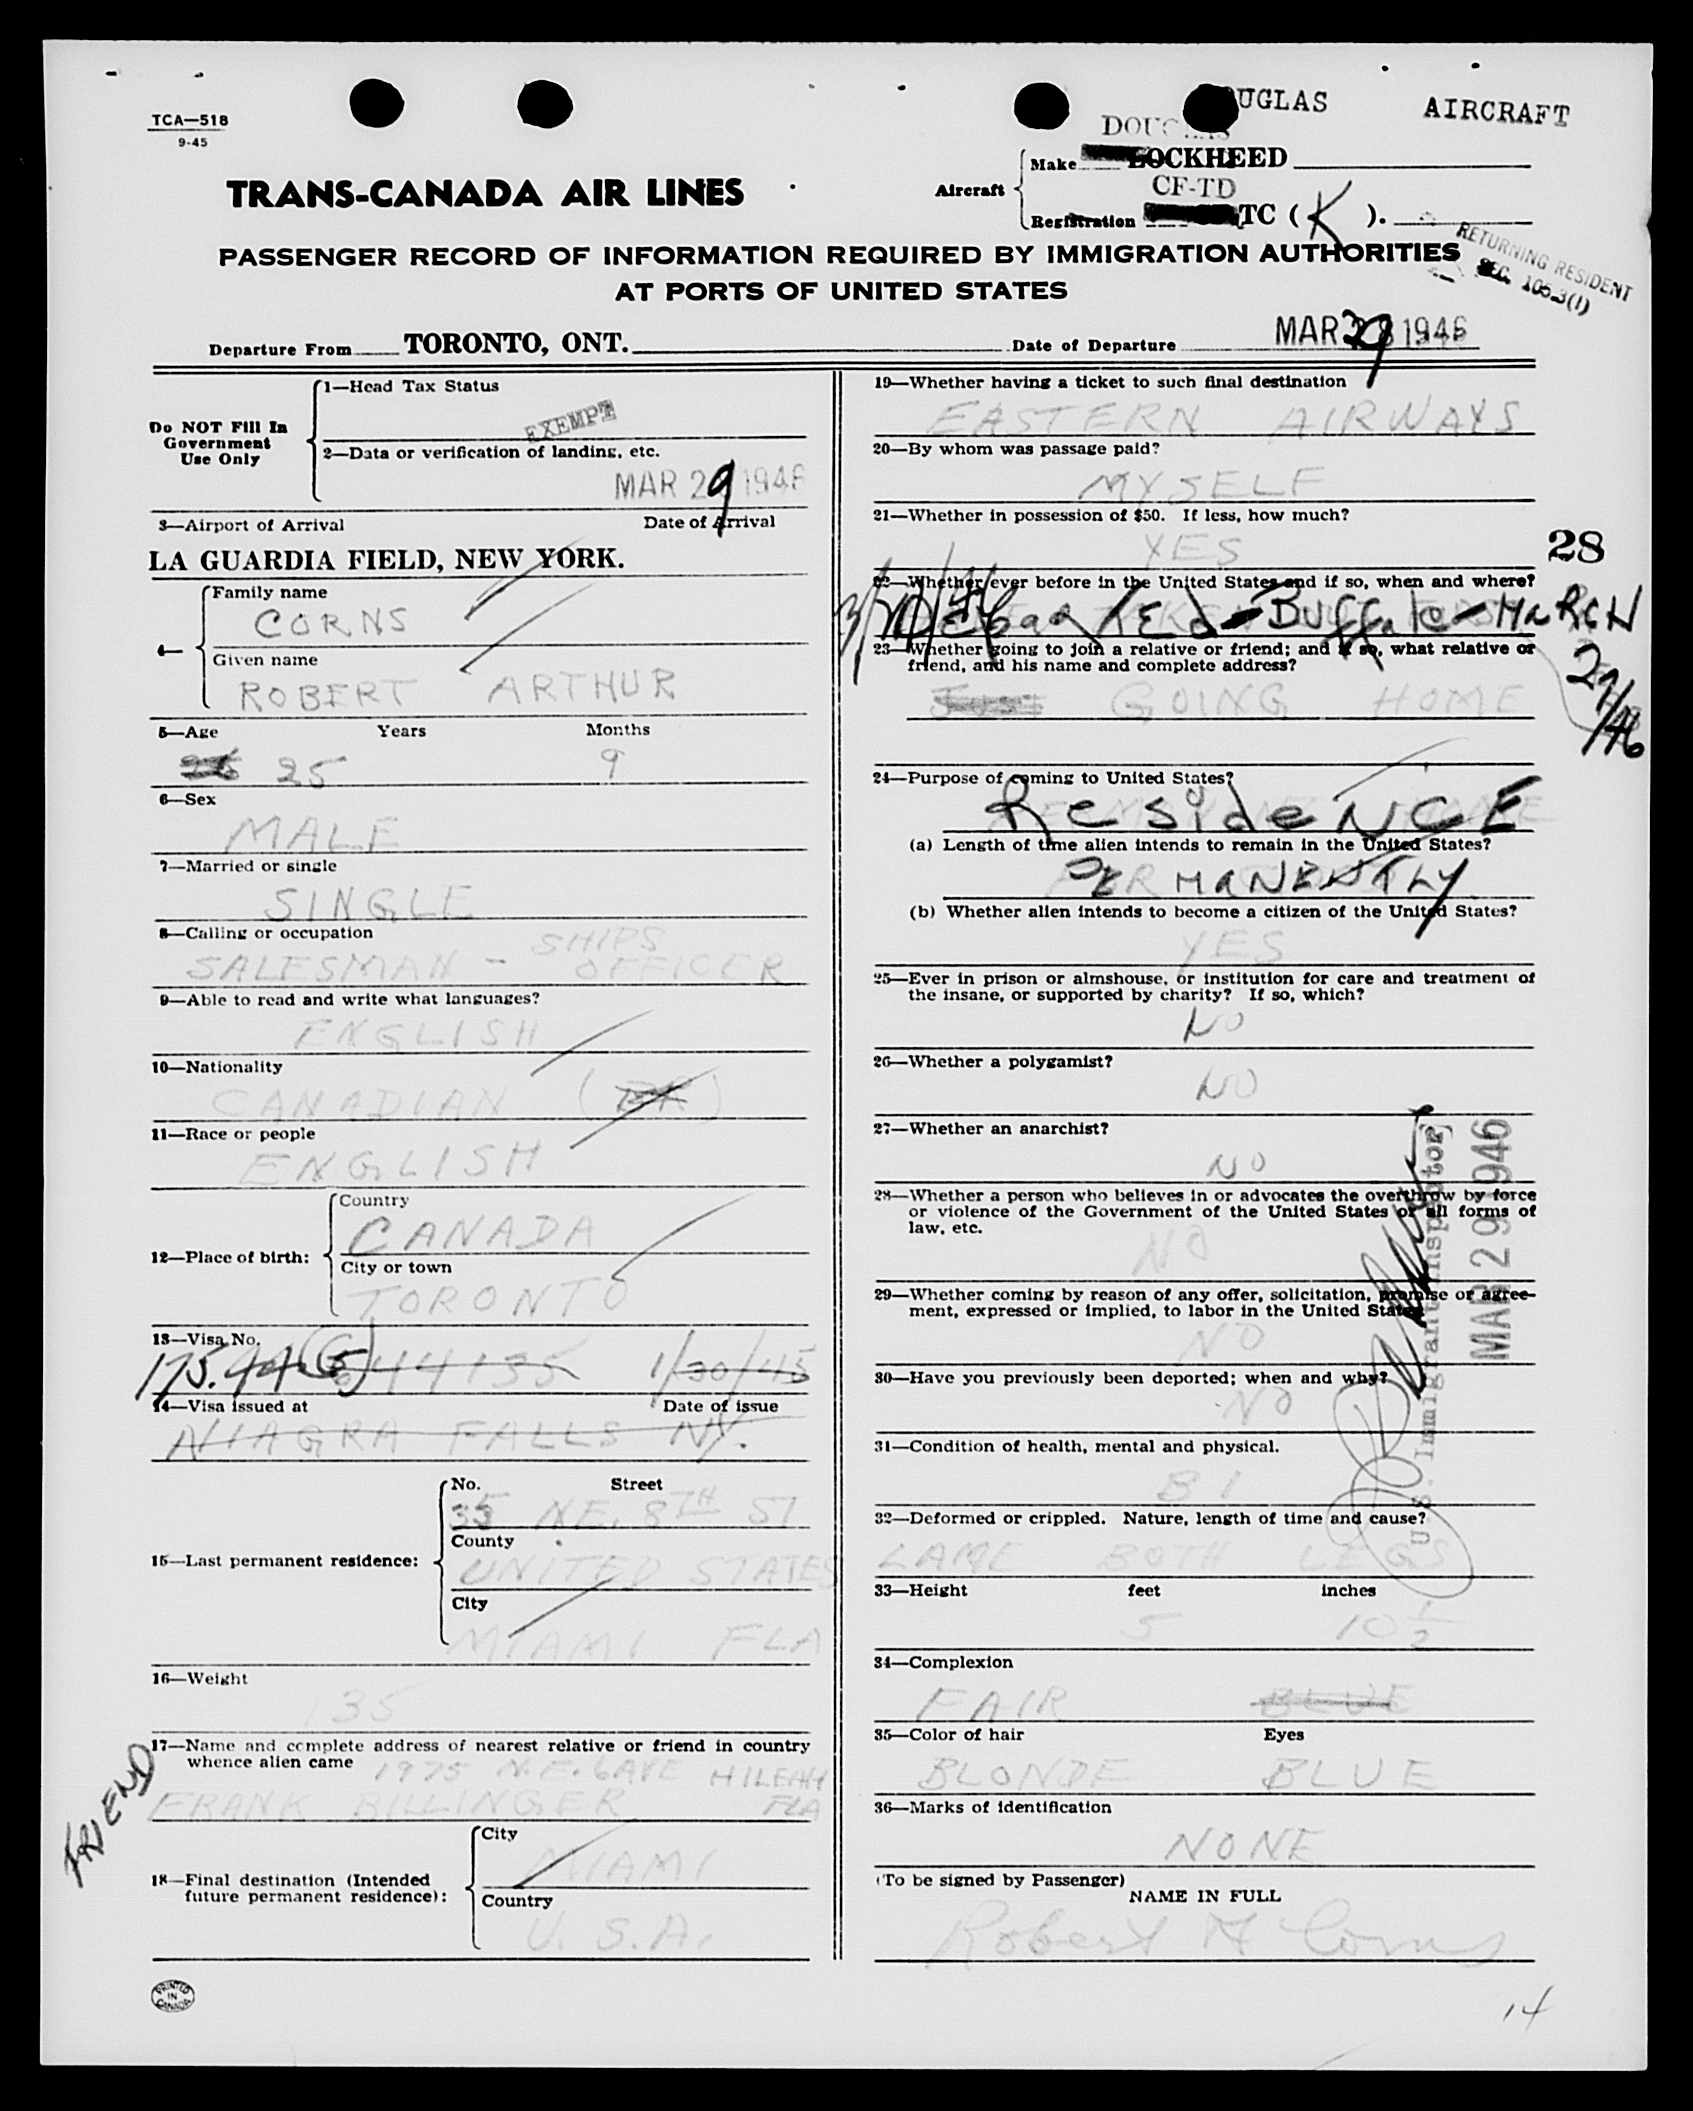 TCA—518
9-45
UGLAS AIRCRAFT
TRANS-CANADA AIR LINES
Aircraft
Make LOCKHEED
CF-TD
Registration TC ( K ).
PASSENGER RECORD OF INFORMATION REQUIRED BY IMMIGRATION AUTHORITIES
AT PORTS OF UNITED STATES
RETURNING RESIDENT
SEC. 105.3(1)
Departure From TORONTO, ONT. Date of Departure MAR 29 1946
Do NOT Fill In
Government
Use Only
1—Head Tax Status
EXEMPT
2—Data or verification of landing, etc.
MAR 29 1946
3—Airport of Arrival Date of Arrival
LA GUARDIA FIELD, NEW YORK.
4—
Family name
CORNS
Given name
ROBERT ARTHUR
5—Age Years Months
25 9
6—Sex
MALE
7—Married or single
SINGLE
8—Calling or occupation
SHIPS
SALESMAN - OFFICER
9—Able to read and write what languages?
ENGLISH
10—Nationality
CANADIAN
11—Race or people
ENGLISH
12—Place of birth:
Country
CANADA
City or town
TORONTO
13—Visa No.
44135 1/30/45
14—Visa issued at Date of issue
NIAGRA FALLS NY.
15—Last permanent residence:
No. Street
35 NE. 8TH ST
County
UNITED STATES
City
MIAMI FLA
16—Weight
135
17—Name and complete address of nearest relative or friend in country
whence alien came 1975 N.E. 6 AVE HILEAH
FRANK BILLINGER FLA
FRIEND
18—Final destination (Intended
future permanent residence):
City
MIAMI
Country
U. S. A.
PRINTED
IN
CANADA
19—Whether having a ticket to such final destination
EASTERN AIRWAYS
20—By whom was passage paid?
MYSELF
21—Whether in possession of $50. If less, how much?
YES
28
22—Whether ever before in the United States and if so, when and where?
Debarked - Buffalo - MaRCH
27/46
23—Whether going to join a relative or friend; and if so, what relative or
friend, and his name and complete address?
GOING HOME
24—Purpose of coming to United States?
ResideNCE
(a) Length of time alien intends to remain in the United States?
PERMANENTLY
(b) Whether alien intends to become a citizen of the United States?
YES
25—Ever in prison or almshouse, or institution for care and treatment of
the insane, or supported by charity? If so, which?
NO
26—Whether a polygamist?
NO
27—Whether an anarchist?
NO
28—Whether a person who believes in or advocates the overthrow by force
or violence of the Government of the United States or all forms of
law, etc.
NO
29—Whether coming by reason of any offer, solicitation, promise or agree-
ment, expressed or implied, to labor in the United States
NO
30—Have you previously been deported; when and why?
NO
U. S. Immigrant Inspector
MAR 29 1946
31—Condition of health, mental and physical.
32—Deformed or crippled. Nature, length of time and cause?
LAME BOTH LEGS
33—Height feet inches
5 10 1/2
34—Complexion
FAIR BLUE
35—Color of hair Eyes
BLONDE BLUE
36—Marks of identification
NONE
(To be signed by Passenger)
NAME IN FULL
Robert A Corns
14